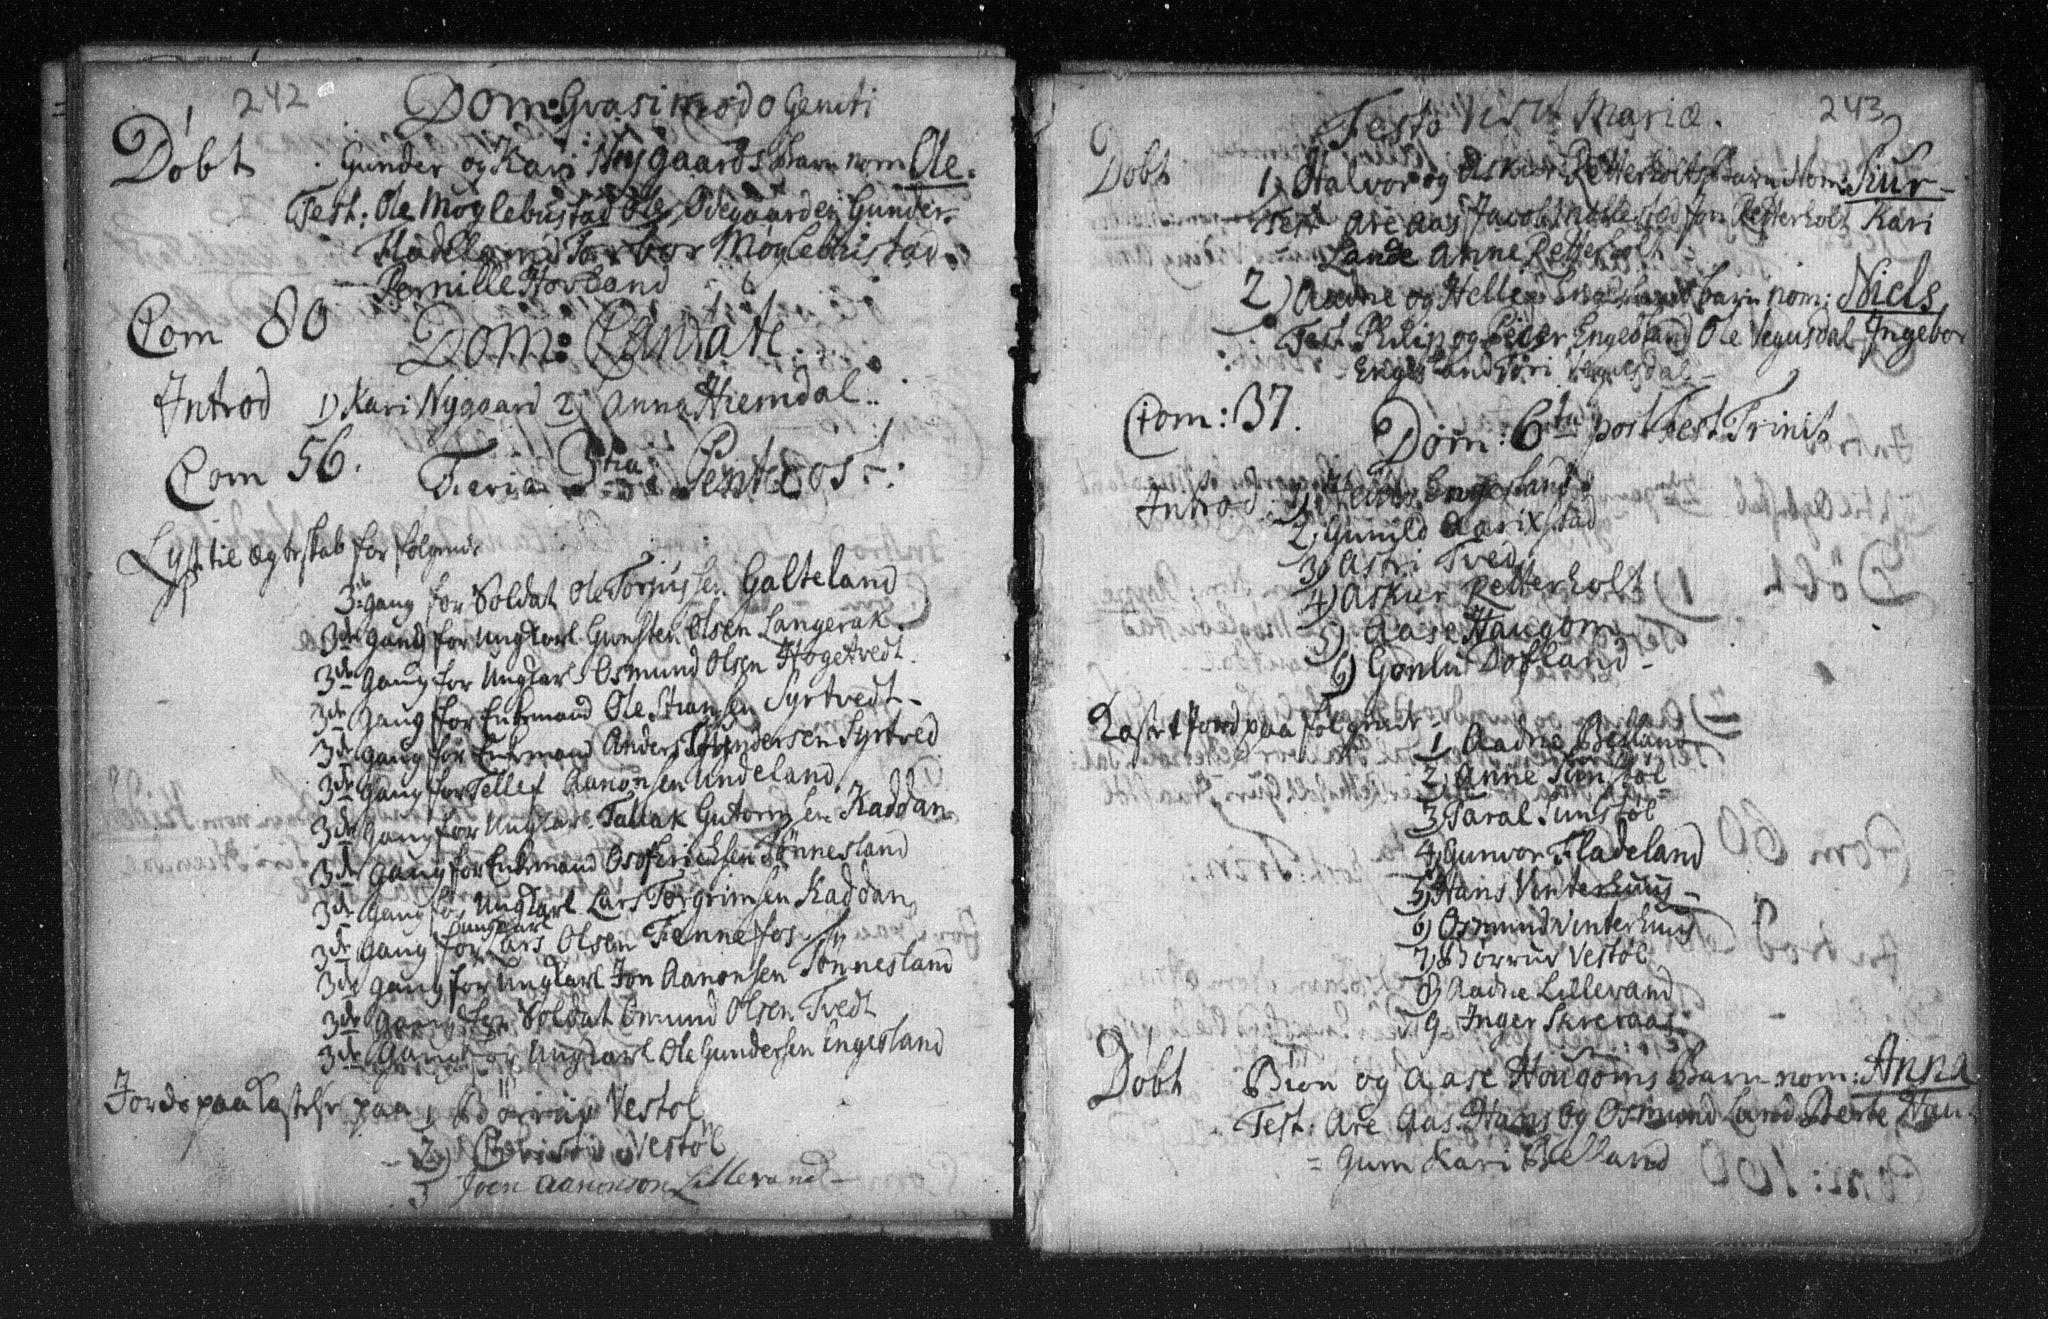 242
Dom: Qvasimodo Geniti
Døbt Gunder og Kari Nygaards Barn nom Ole.
Test: Ole Møglebustad Ole Ødegaarden Gunder
Fladeland Torbor Møglebustad
Pernille Hovland
Com 80
Dom: Cantate
Introd 1) Kari Nygaard 2) Anna Hiemdal
Com 56.
Feria 3tia Pentecost:
Lyst til Ægteskab for følgende
3de gang for Soldat Ole Torjussen Galteland
3de gang for Ungkarl Gunsten Olsen Langerak
3de gang for Ungkarl Osmund Olsen Høgetvedt
3de gang for Enkemand Ole Syrtvedt
3de gang for Enkemand Anders Syrtved
3de gang for Tellef Aanonsen Undeland
3de gang for Ungkarl Tallak Gutormsen Kaddan
3de gang for Enkemand Tønnesland
3de gang for Ungkarl Lars Torgrimsen Kaddan
Ungkarl
3de gang for Lars Olsen Fennefos
3de gang for Ungkarl Jon Aanonsen Tønnesland
3de gang for Soldat Omund Olsen Tvedt
3de gang for Ungkarl Ole Gundersen Engesland
Jords paa kastelse paa 1 Vestøl
2) Vestøl
3 Joen Aanonson Lillevand
243
Festo Visit Mariæ.
Døbt 1) Halvor og Askier Retterholts Barn Nom:
Test Are Aas Jacob Jon Retterholt Kari
Lande Anne Retterholt
2) Aadne og Helle Engeslands barn nom: Niels
Test Philip og Peder Engesland Ole Vegusdal Ingebor
Engesland Vegusdal
Com: 37.
Dom: 6ta post Fest Trinit
Introd: 1) Helle Engesland
2) Gunild Aarixstad
3) Astri Tved
4) Askier Retterholt
5) Aase Haugom
6) Gønlu Dofland
Kastet Jord paa følgende
1 Aadne Belland
2) Anne Sunstøl
3) Taral Sunstøl
4) Gunvor Fladeland
5) Hans Vinterhuus
6) Osmund Vinterhuus
7) Børruf Vestøl
8) Aadne Lillevand
9 Inger Skreraas
Døbt Biøn og Aase Hougoms Barn nom: Anna
Test: Are Aas Hans og Osmund Land Berte Hau-
= gum Kari Belland